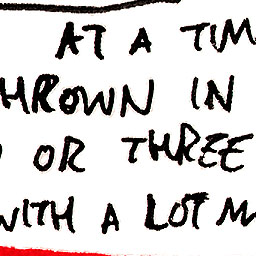 AT A TIM
HROWN IN
OR THREE
WITH A LOT M